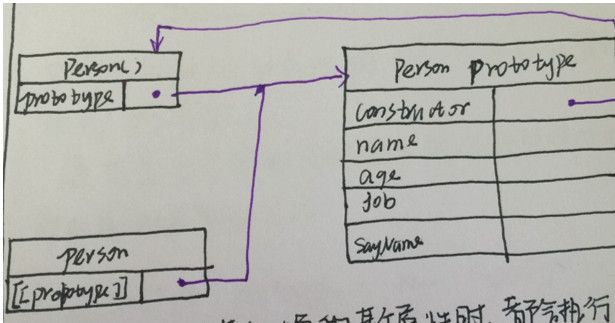 Person()
prototype
Person prototype
constructor
name
age
Job
SayName
person
[[prototype]]
属性时,都会执行